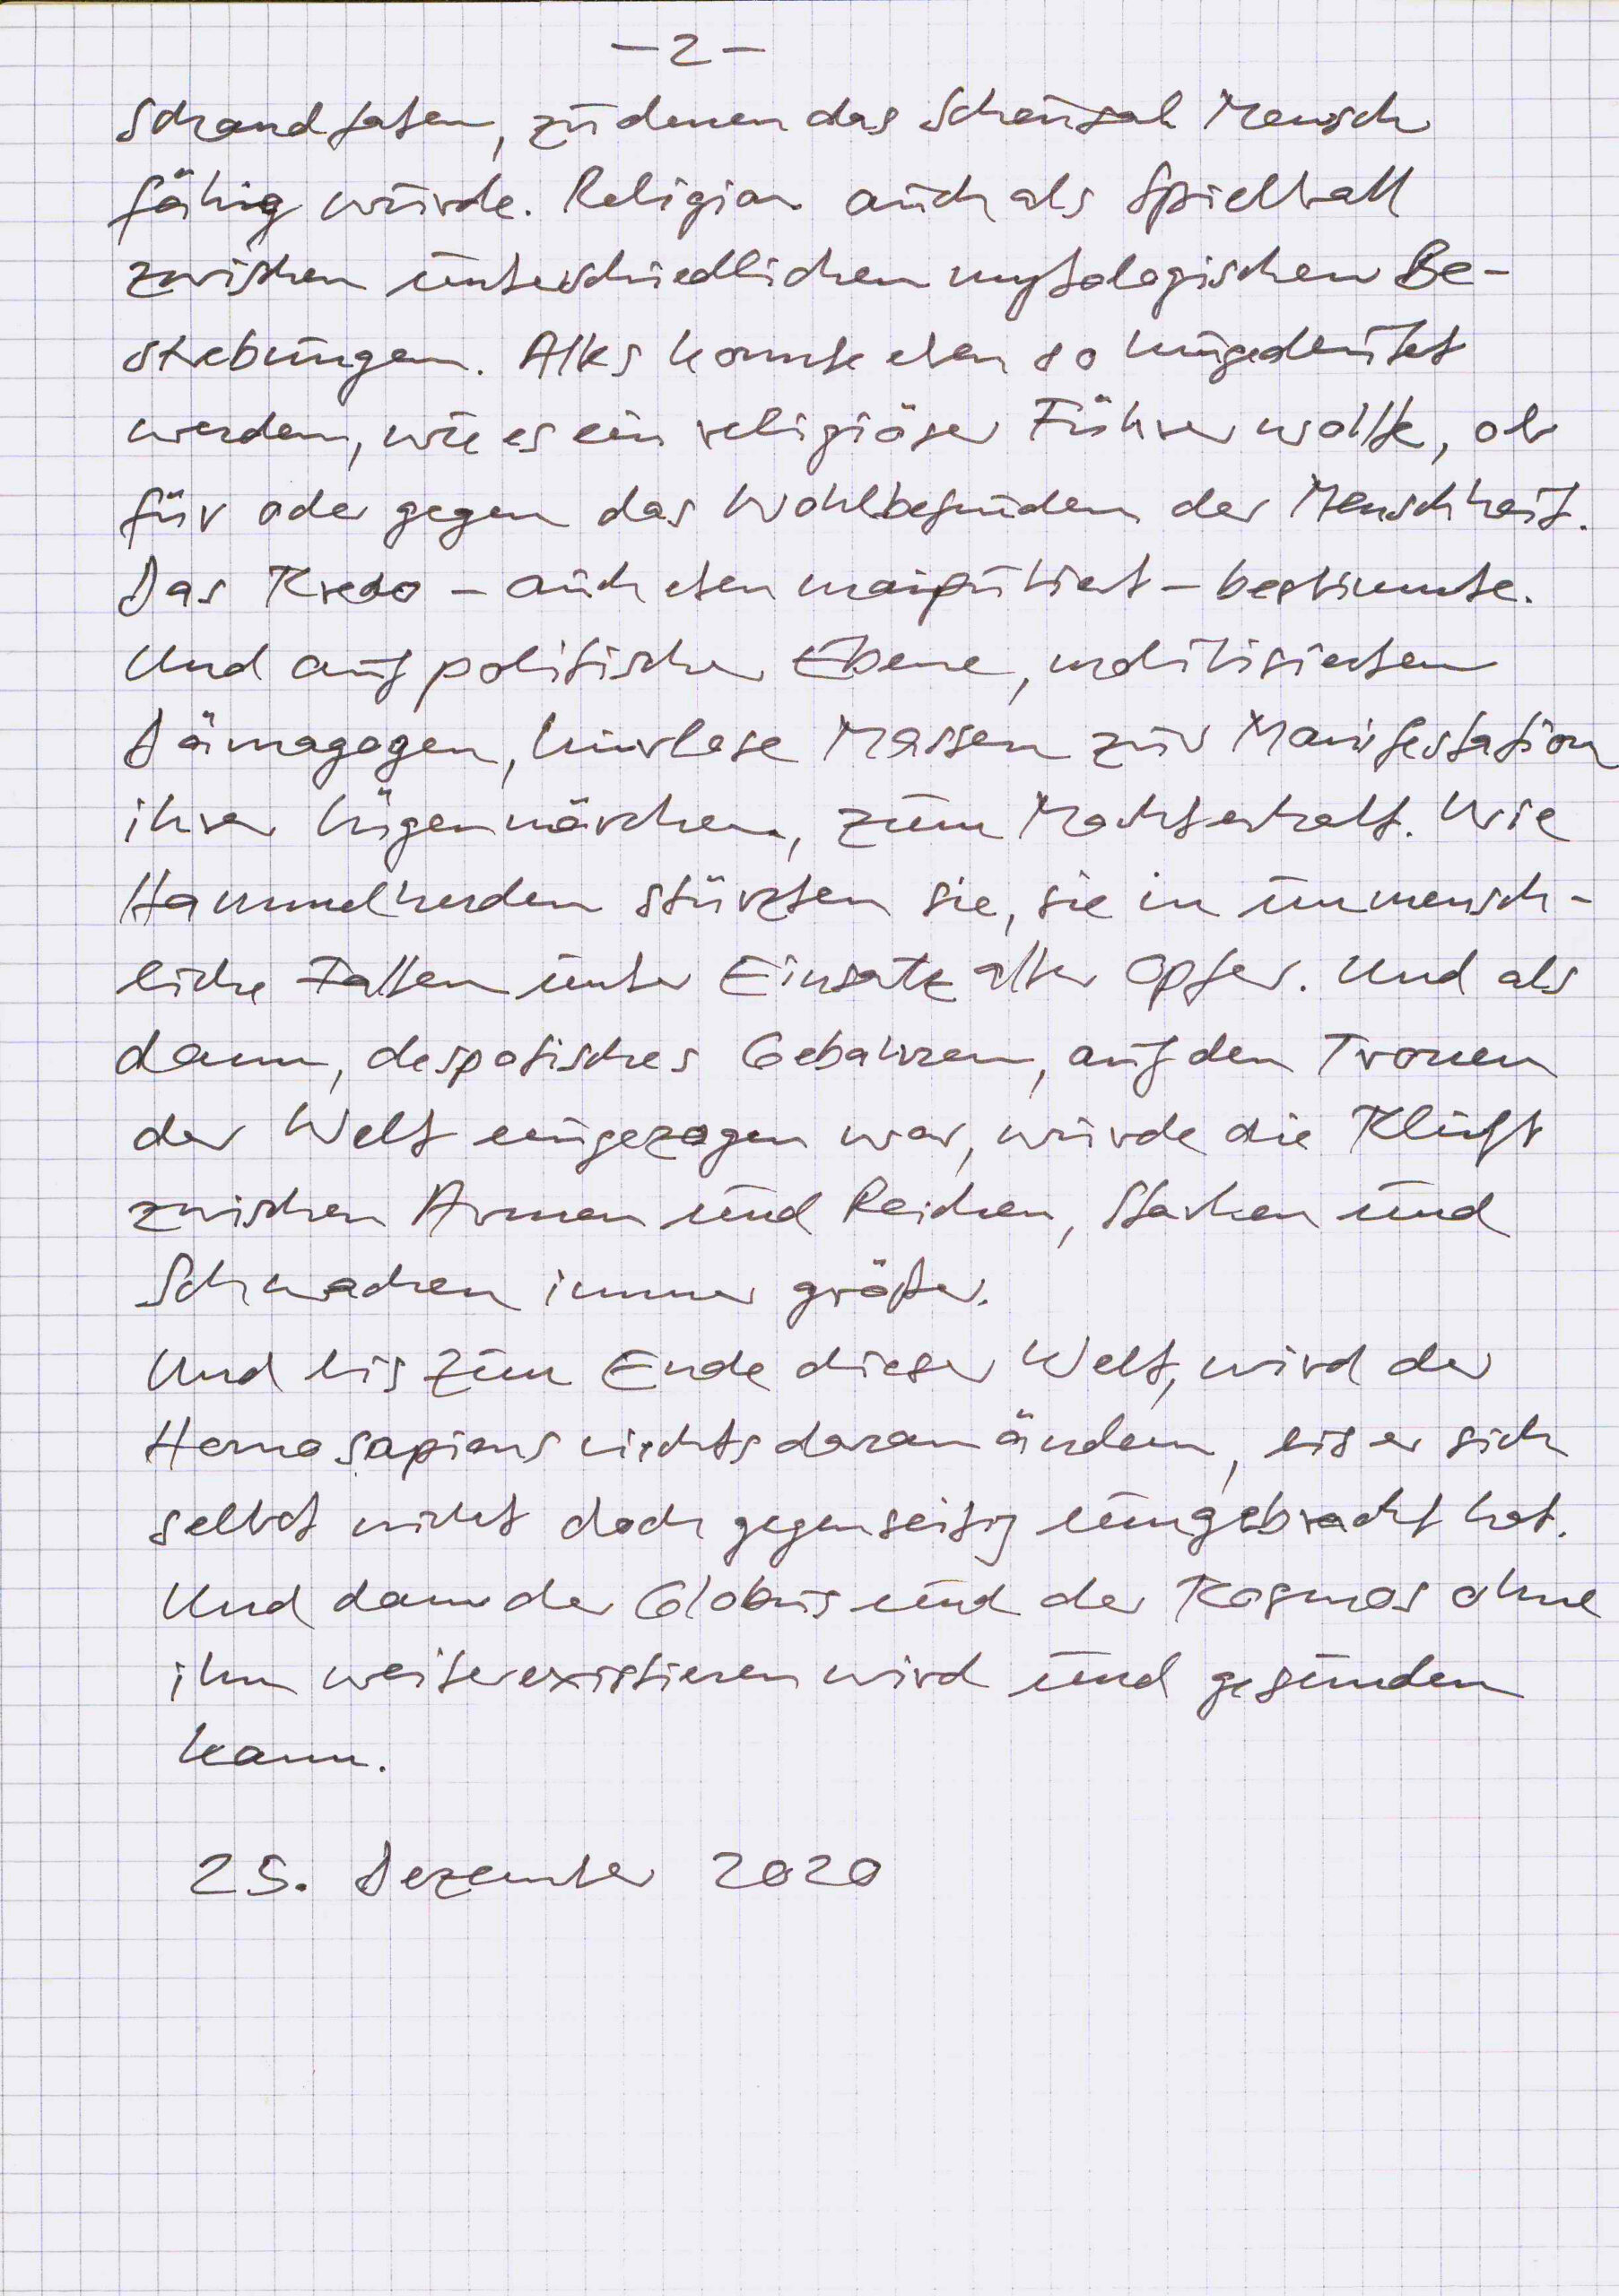 – 2 –
Schandtaten, zu denen das Scheusal Mensch
fähig wurde. Religion auch als Spielball
zwischen unterschiedlichen mytologischen Be-
strebungen. Alles konnte eben so hingedeutet
werden, wie es ein religiöser Führer wollte, ob
für oder gegen das Wohlbefinden der Menschheit.
Das Kredo – auch eben manipuliert – bestimmte.
Und auf politischer Ebene, mobilisierten
Dämagogen, hirnlose Massen zur Manifestation
ihrer Lügenmärchen, zum Machterhalt. Wie
Hammelherden stürzten sie, sie in unmensch-
liche Fallen unter Einsatz aller Opfer. Und als
dann, despotisches Gebahren, auf den Tronen
der Welt eingezogen war, wurde die Kluft
zwischen Armen und Reichen, Starken und
Schwachen immer größer.
Und bis zum Ende dieser Welt, wird der
Homo sapiens nichts daran ändern, bis er sich
selbst nicht doch gegenseitig umgebracht hat.
Und dann der Globus und der Kosmos ohne
ihn weiterexistieren wird und gesunden
kann.
25. Dezember 2020